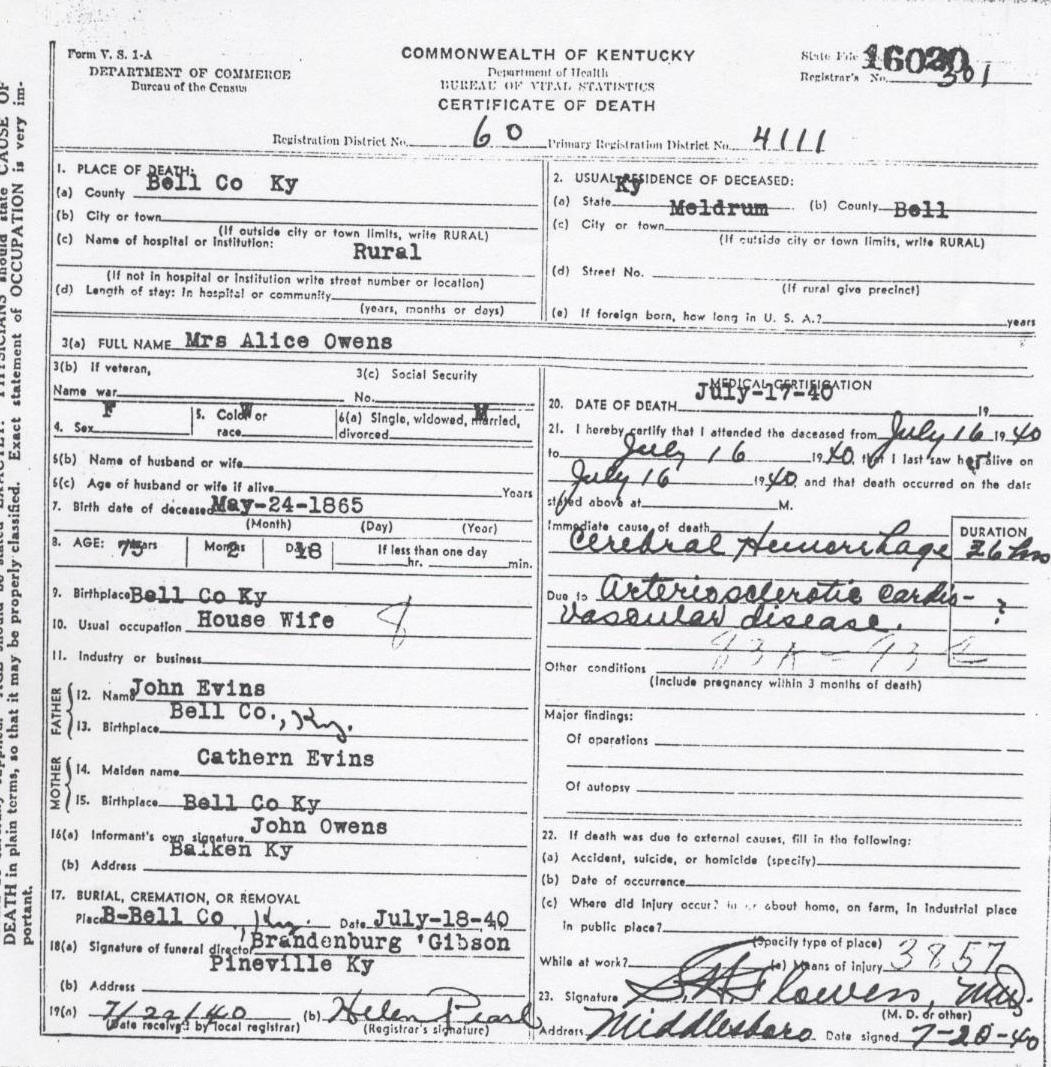 DEATH in plain terms, so that it may be properly classified. Exact statement of OCCUPATION is very im-
portant.
Form V. S. 1-A
DEPARTMENT OF COMMERCE
Bureau of the Census
COMMONWEALTH OF KENTUCKY
Department of Health
BUREAU OF VITAL STATISTICS
CERTIFICATE OF DEATH
State File 16020
Registrar's No. 301
Registration District No. 60 Primary Registration District No. 4111
1. PLACE OF DEATH:
(a) County Bell Co Ky
(b) City or town
(If outside city or town limits, write RURAL)
(c) Name of hospital or institution:
Rural
(If not in hospital or institution write street number or location)
(d) Length of stay: In hospital or community
(years, months or days)
2. USUAL RESIDENCE OF DECEASED:
(a) State Ky (b) County Bell
(c) City or town Meldrum
(If outside city or town limits, write RURAL)
(d) Street No.
(If rural give precinct)
(e) If foreign born, how long in U. S. A.? years
3(a) FULL NAME Mrs Alice Owens
3(b) If veteran,
Name war
3(c) Social Security
No.
4. Sex F
5. Color or
race W
6(a) Single, widowed, married,
divorced M
6(b) Name of husband or wife
6(c) Age of husband or wife if alive Years
7. Birth date of deceased May-24-1865
(Month) (Day) (Year)
8. AGE: Years 75 Months 2 Days 18 If less than one day
hr. min.
9. Birthplace Bell Co Ky
10. Usual occupation House Wife 8
11. Industry or business
FATHER
12. Name John Evins
13. Birthplace Bell Co., Ky.
MOTHER
14. Maiden name Cathern Evins
15. Birthplace Bell Co Ky
16(a) Informant's own signature John Owens
(b) Address Balken Ky
17. BURIAL, CREMATION, OR REMOVAL
Place B-Bell Co, Ky. Date July-18-40
18(a) Signature of funeral director Brandenburg 'Gibson
(b) Address Pineville Ky
19(a) 7/22/40 (b) Helen Pearl
(Date received by local registrar) (Registrar's signature)
MEDICAL CERTIFICATION
20. DATE OF DEATH July-17-40 19
21. I hereby certify that I attended the deceased from July 16 1940
to July 16 1940, that I last saw her alive on
July 16 1940, and that death occurred on the date
stated above at M.
Immediate cause of death DURATION
Cerebral Hemorrhage 36 hrs
Due to Arteriosclerotic cardio-
vascular disease. ?
Other conditions
(Include pregnancy within 3 months of death)
Major findings:
Of operations
Of autopsy
22. If death was due to external causes, fill in the following:
(a) Accident, suicide, or homicide (specify)
(b) Date of occurrence
(c) Where did injury occur? in or about home, on farm, in industrial place
in public place?
(Specify type of place)
While at work? (e) Means of injury 3857
23. Signature Flowers, MD.
(M. D. or other)
Address Middlesboro Date signed 7-20-40